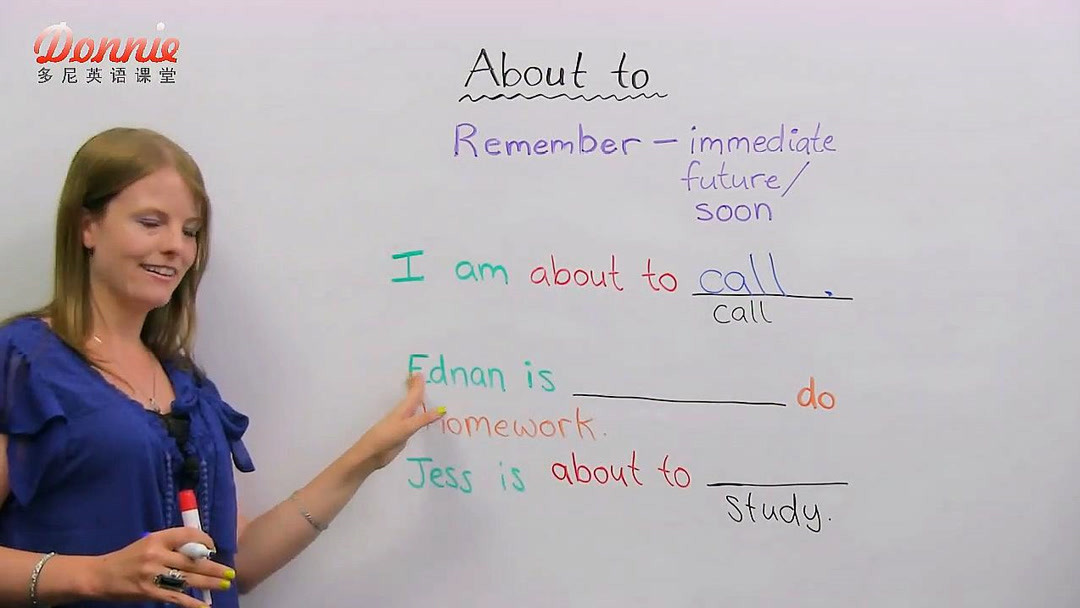 Donnie
多尼英语课堂
About to
Remember – immediate
future/
soon
I am about to call.
call
Ednan is __________ do
Homework.
Jess is about to ________
study.